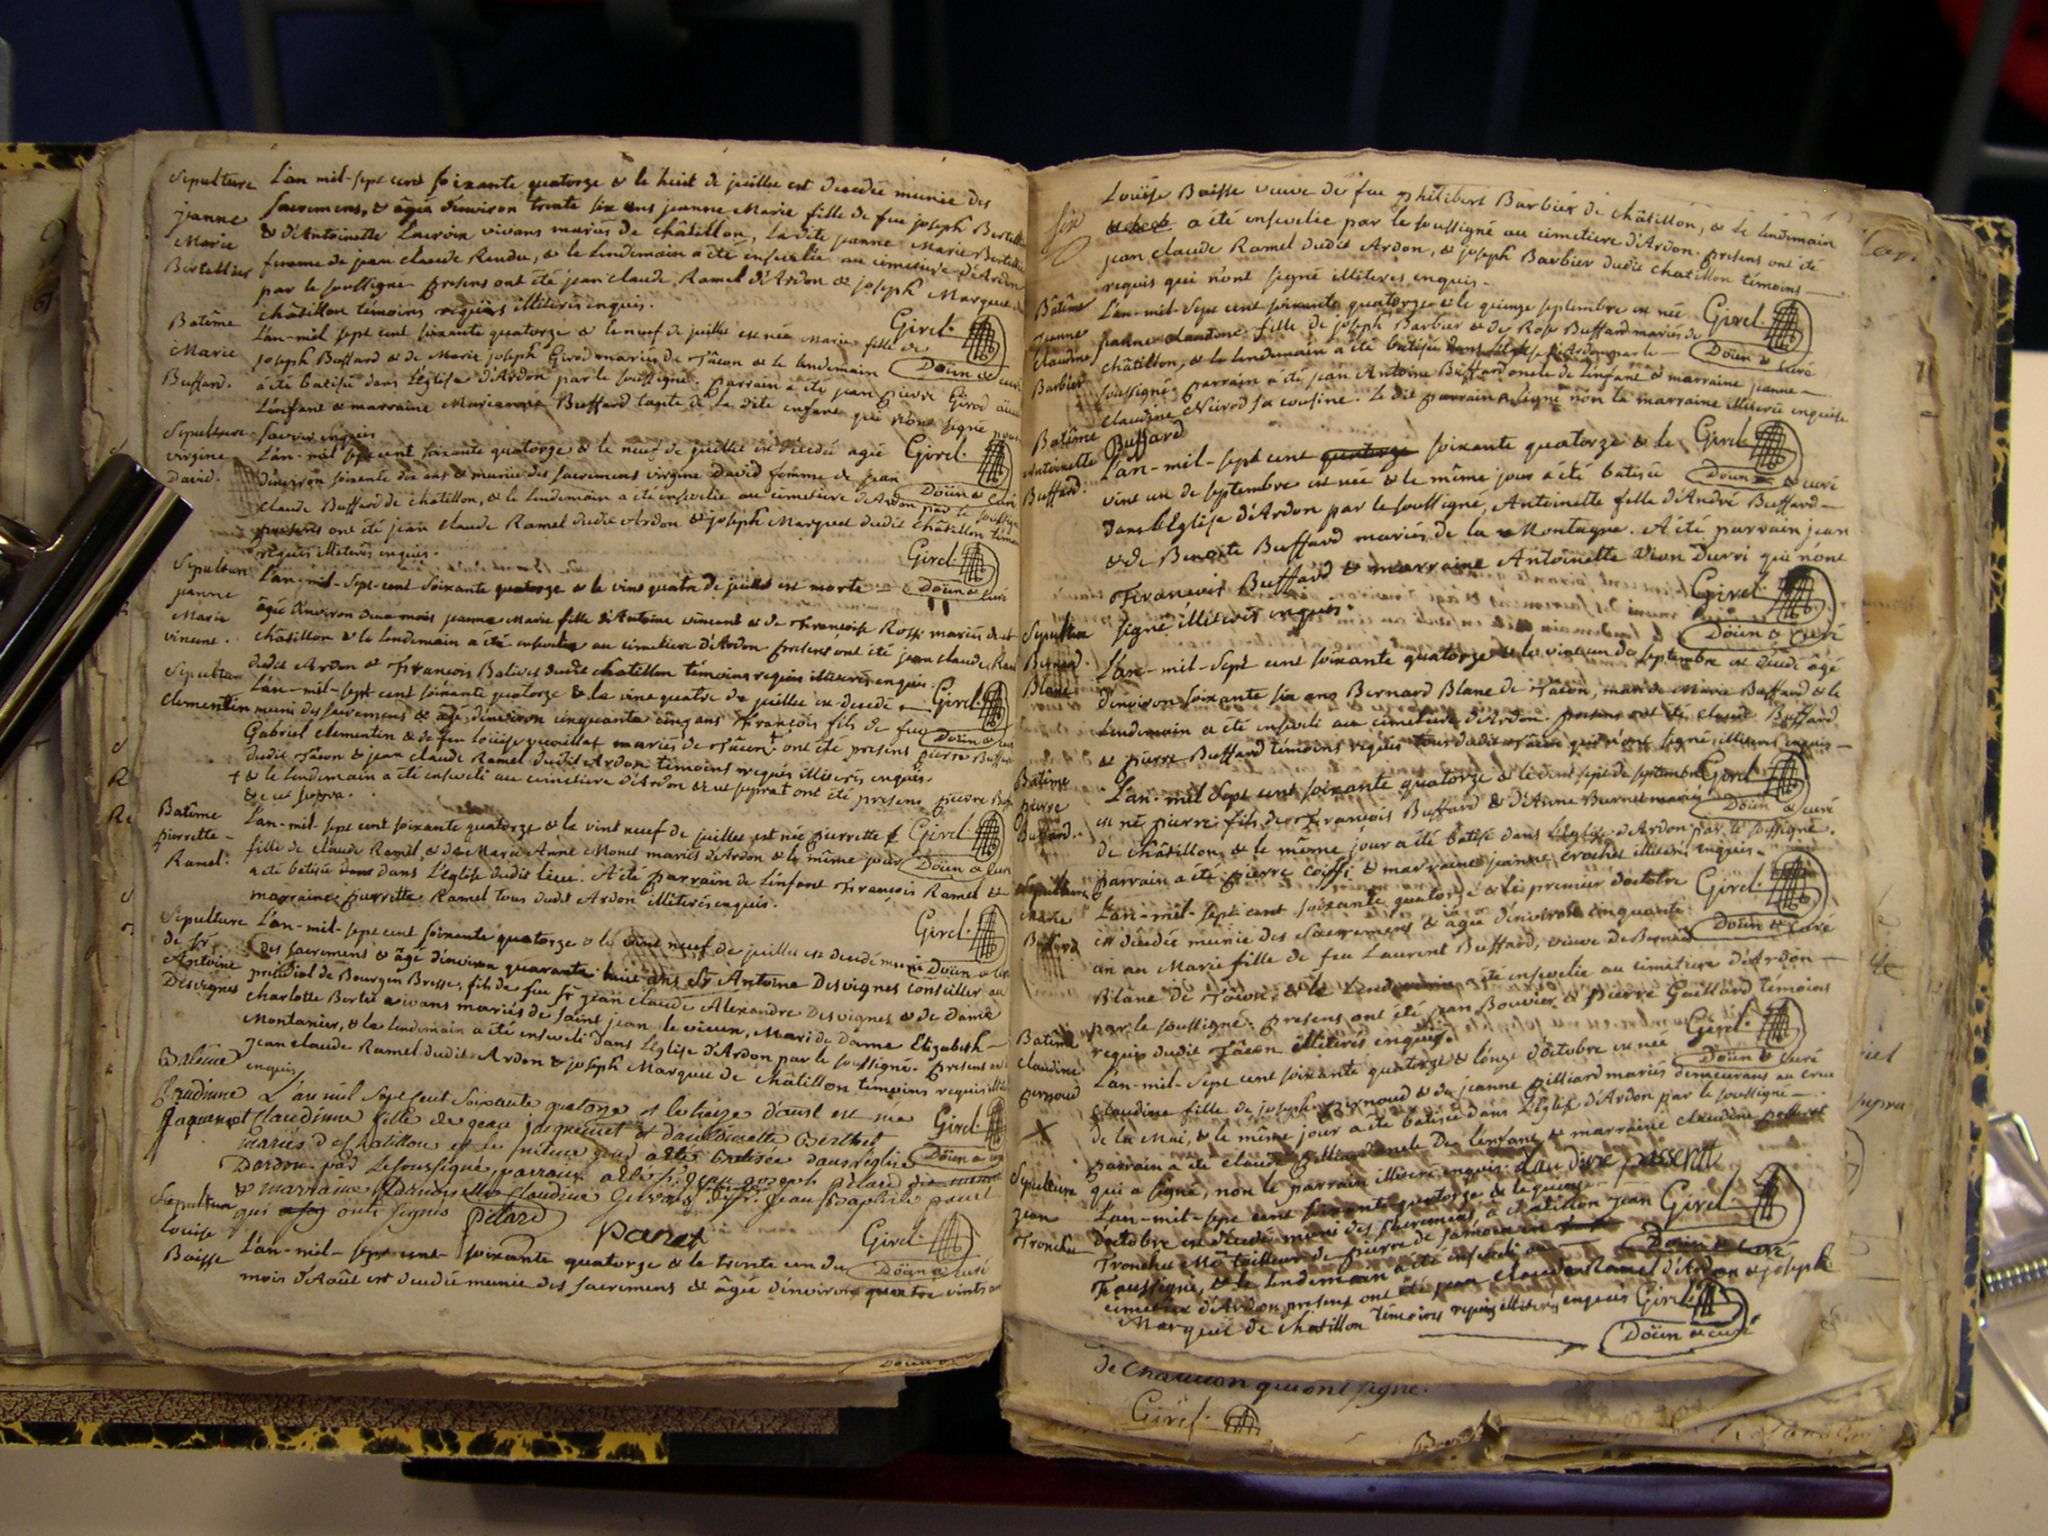 Sepulture
jeanne
Marie
Bertellier
L'an mil-sept cent soixante quatorze & le huit de juillet est decedée munie des
sacremens, & âgée d'environ trente six ans jeanne Marie fille de feu joseph
& d'Antoinette Lacroix vivans mariés de châtillon, la dite jeanne Marie
femme de jean claude Rendu, & le lendemain a été ensevelie au cimetiere d'Ardon
par le soussigné. presens ont été jean claude Ramel d'Ardon & joseph Marguet
châtillon témoins requis illiterés enquis.
Girel.
Doïen & curé
Batême
Marie
Buffard.
L'an-mil sept cent soixante quatorze & le neuf de juillet est née Marie fille de
joseph Buffard & de Marie joseph Girod mariés de Tâcon & le lendemain
a été batisée dans l'Eglise d'Ardon par le soussigné. parrain a été jean pierre Girod
l'enfant & marraine Marianne Buffard tante de la dite enfant qui n'ont signé pour
savoir enquis
Girel.
Doïen & curé
Sepulture
virgine
David.
L'an-mil sept cent soixante quatorze & le neuf de juillet est décedée agée
d'environ soixante dix ans & munie des sacremens virgine David femme de jean
claude Buffard de chatillon, & le lendemain a été ensevelie au cimetiere d'Ardon par le
presens ont été jean claude Ramel dudit Ardon & joseph Marguet dudit châtillon
requis illiterés enquis.
Girel.
Doïen & curé
Sepulture
jeanne
Marie
vincent.
L'an-mil-sept-cent soixante quatorze & le vint quatre de juillet est morte
âgée d'environ deux mois jeanne Marie fille d'Antoine vincent & de Françoise mariés de
châtillon & le lendemain a été ensevelie au cimetiere d'Ardon. presens ont été jean claude
dudit Ardon & François dudit châtillon témoins requis illiterés enquis.
Girel.
Doïen & curé
Sepulture
Clementin
L'an-mil-sept cent soixante quatorze & le vint quatre de juillet est decedé
muni des sacremens & âgé d'environ cinquante cinq ans François fils de feu
Gabriel clementin & de feu Loüise mariés de Tâcon + ont été presens pierre Buffard
dudit Tâcon & jean claude Ramel dudit Ardon temoins requis illiterés enquis.
+ & le lendemain a été enseveli au cimetiere d'Ardon & ont été presens pierre
&c ut supra.
Batême
pierrette
Ramel.
L'an-mil-sept cent soixante quatorze & le vint neuf de juillet est née pierrette
fille de claude Ramel, & de Marie Anne Monet mariés d'Ardon & le même jour
a été batisée dans L'église dudit lieu. A été parrain de L'enfant François Ramel &
marraine pierrette Ramel tous dudit Ardon illiterés enquis.
Girel.
Doïen & curé
Sepulture
de Sr.
Antoine
Desvignes
L'an-mil-sept cent soixante quatorze & le vint neuf de juillet est decedé muni
des sacremens & âgé d'environ quarante huit ans Sr Antoine Desvignes conseiller au
présidial de Bourg en Bresse, fils de feu Sr jean claude Alexandre Desvignes & de Dame
charlotte Bertet vivans mariés de saint jean le vieux, Mari de dame Elizabeth
Montanier, & le lendemain a été enseveli dans L'église d'Ardon par le soussigné. presens ont
jean claude Ramel dudit Ardon & joseph Marguet de châtillon témoins requis
enquis
Girel.
Doïen & curé
Batême
Jaquemet
L'an mil sept cent soixante quatorze et le treize d'aust est née
Claudinne fille de jean jaquemet et d'antoinette Berthet
mariés de Chatillon et le même jour a été batisée dans l'église
Dardon par le soussigné, parrain a été Sr. jean joseph Pelard
& marraine Damoiselle Claudine Gervais Jean Baptiste panet
qui ont signés
Pelard
Panet
Girel.
Doïen & curé
Sepulture
Louise
Baisse
L'an-mil-sept cent soixante quatorze & le trente un du
mois d'Août est decedée munie des sacremens & âgée d'environ quatre vints
Loüise Baisse veuve de feu philibert Barbier de châtillon, & le lendemain
a été ensevelie par le soussigné au cimetiere d'Ardon. presens ont été
jean claude Ramel dudit Ardon, & joseph Barbier dudit chatillon témoins
requis qui n'ont signé illiteres enquis.
Girel.
Doïen & curé
Batême
jeanne
claudine
Barbier
L'an-mil-sept cent soixante quatorze & le quinze septembre est née
jeanne claudine fille de joseph Barbier & de Rose Buffard mariés de
châtillon, & le lendemain a été batisée dans l'église d'Ardon par le
soussigné. parrain a été jean Antoine Buffard oncle de l'enfant & marraine jeanne
claudine Nivrod sa cousine. le dit parrain a signé non la marraine illiterée enquise
Buffard
Girel.
Doïen & curé
Batême
Antoinette
Buffard.
L'an-mil-sept cent quatorze soixante quatorze & le
vint un de septembre est née & le même jour a été batisée
dans l'Eglise d'Ardon par le soussigné, Antoinette fille d'André Buffard
& de Benoite Buffard mariés de la Montagne. A été parrain jean
François Buffard & marraine Antoinette qui n'ont
signé illiterés enquis.
Girel.
Doïen & curé
Sepulture
Bernard
Blanc
L'an-mil-sept cent soixante quatorze & le vint un de septembre est decedé âgé
d'environ soixante six ans Bernard Blanc de Tâcon, mari de Marie Buffard & le
lendemain a été enseveli au cimetiere d'Ardon. presens ont été claude Buffard
& pierre Buffard témoins requis tous dudit Tâcon qui n'ont signé, illiterés enquis
Girel.
Doïen & curé
Batême
pierre
Buffard.
L'an-mil sept cent soixante quatorze & le vint sept de septembre
est né pierre fils de François Buffard & d'Anne Burnet mariés
de châtillon, & le même jour a été batisé dans l'église d'Ardon par le soussigné.
parrain a été pierre coiffi & marraine jeanne crochet illiterés enquis.
Girel.
Doïen & curé
Sepulture
Marie
Buffard
L'an-mil-sept cent soixante quatorze & le premier d'octobre
est decedée munie des sacremens & agée d'environ cinquante
un an Marie fille de feu Laurent Buffard, veuve de Bernard
Blanc de Tâcon, & le lendemain a été ensevelie au cimetiere d'Ardon
par le soussigné. presens ont été jean Bouvier & Pierre Gaillard témoins
requis dudit Tâcon illiterés enquis.
Girel.
Doïen & curé
Batême
claudine
pernoud
L'an-mil-sept cent soixante quatorze & l'onze d'octobre est née
claudine fille de joseph pernoud & de jeanne pilliard mariés demeurans au
de la Mai, & le même jour a été batisée dans l'église d'Ardon par le soussigné.
parrain a été claude pilliard oncle de l'enfant & marraine claudine
qui a signé, non le parrain illiteré enquis.
Sepulture
jean
Tronchet
L'an-mil-sept cent soixante quatorze & le quinze
octobre est decedé muni des sacremens, a chatillon jean
Tronchet Me tailleur de pierre de samoëns en
Faussigné, & le lendemain a été enseveli au
cimetiere d'Ardon presens ont été jean claude Ramel d'Ardon & joseph
Marguet de chatillon témoins requis illiterés enquis
Girel.
Doïen & curé
de Chaucon qui ont signé.
Girel.